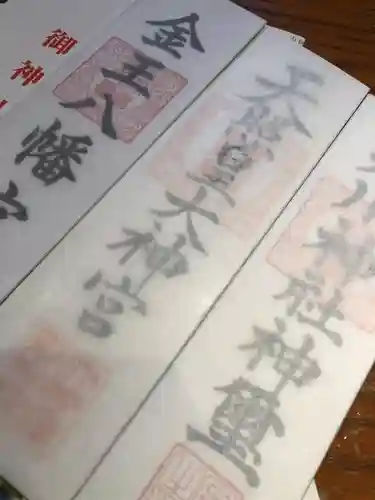 御神
金王八幡宮
天照皇大神宮
川神社神璽